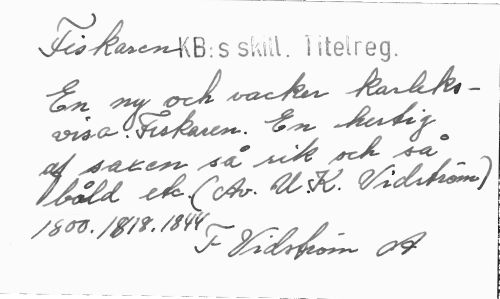 Fiskaren KB:s skill. Titelreg.
En ny och vacker kärleks-
visa. Fiskaren. En hertig
af saxen så rik och så
båld etc. (Av. U.K. Vidström)
1800. 1818. 1844
F Vidström A